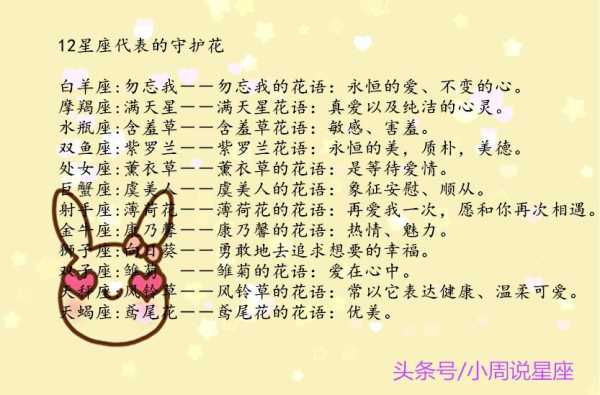 12星座代表的守护花
白羊座:勿忘我——勿忘我的花语：永恒的爱、不变的心。
摩羯座:满天星——满天星花语：真爱以及纯洁的心灵。
水瓶座:含羞草——含羞草花语：敏感、害羞。
双鱼座:紫罗兰——紫罗兰花语：永恒的美，质朴，美德。
处女座:薰衣草——薰衣草的花语：是等待爱情。
巨蟹座:虞美人——虞美人的花语：象征安慰、顺从。
射手座:薄荷花——薄荷花的花语：再爱我一次，愿和你再次相遇。
金牛座:康乃馨——康乃馨的花语：热情、魅力。
狮子座:向日葵——勇敢地去追求想要的幸福。
双子座:雏菊 ——雏菊的花语：爱在心中。
天秤座:风铃草——风铃草的花语：常以它表达健康、温柔可爱。
天蝎座:鸢尾花——鸢尾花的花语：优美。
头条号/小周说星座